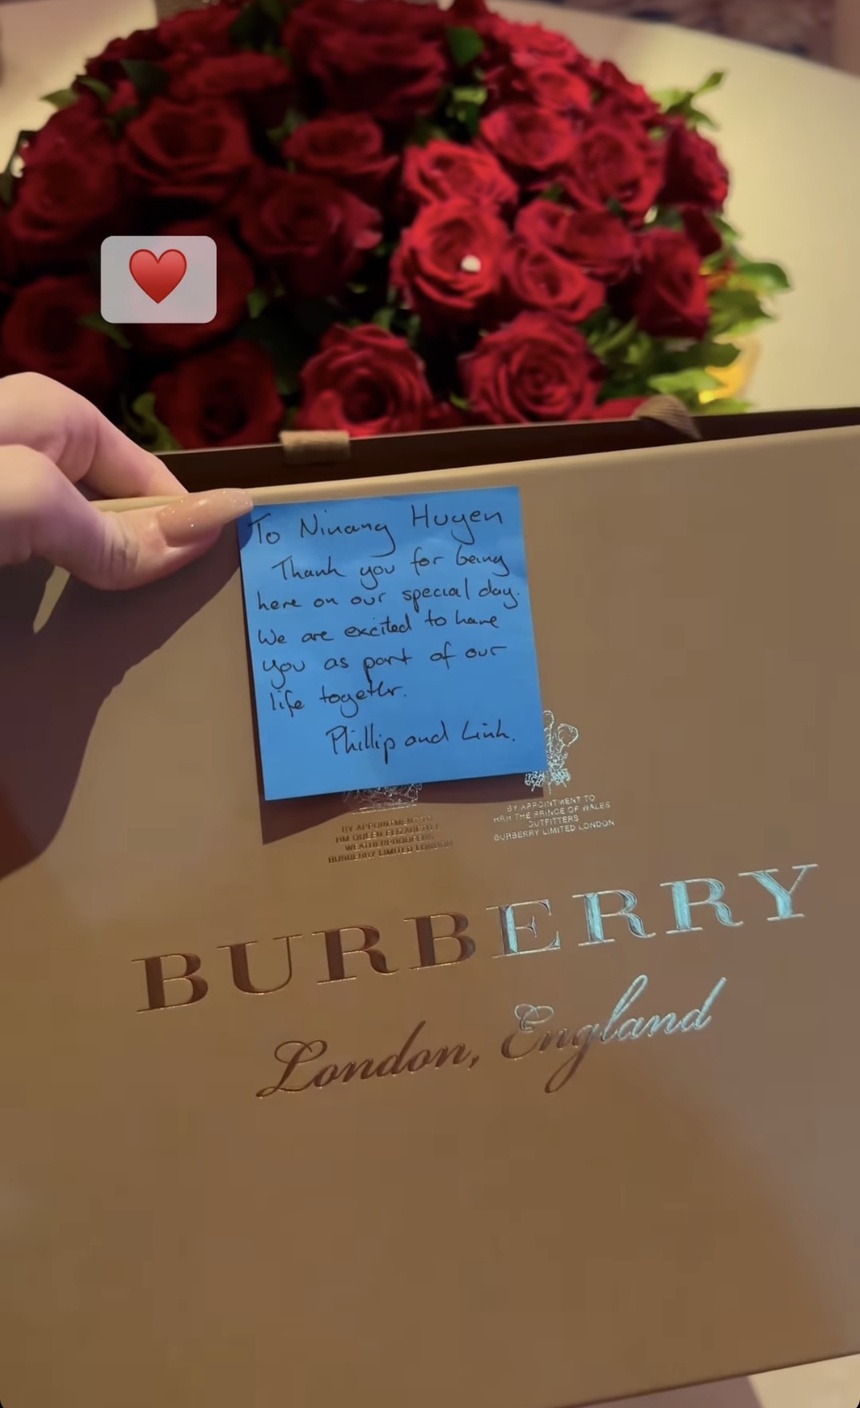 To Ninang Huyen
Thank you for being
here on our special day.
We are excited to have
you as part of our
life together.
Phillip and Linh.
BY APPOINTMENT TO
HM QUEEN ELIZABETH II
WEATHERPROOFERS
BURBERRY LIMITED LONDON
BY APPOINTMENT TO
HRH THE PRINCE OF WALES
OUTFITTERS
BURBERRY LIMITED LONDON
BURBERRY
London, England